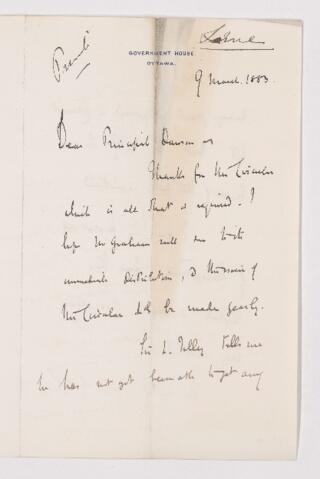 Private
Lorne
GOVERNMENT HOUSE
OTTAWA.
9 March. 1883.
Dear Principal Dawson
Thanks for the Circular
which is all that is required. I
hope Mr Graham will see to its
immediate distribution, & the
the Circular be made yearly.
Sir L. Tilley tells me
he has not yet been able to get any